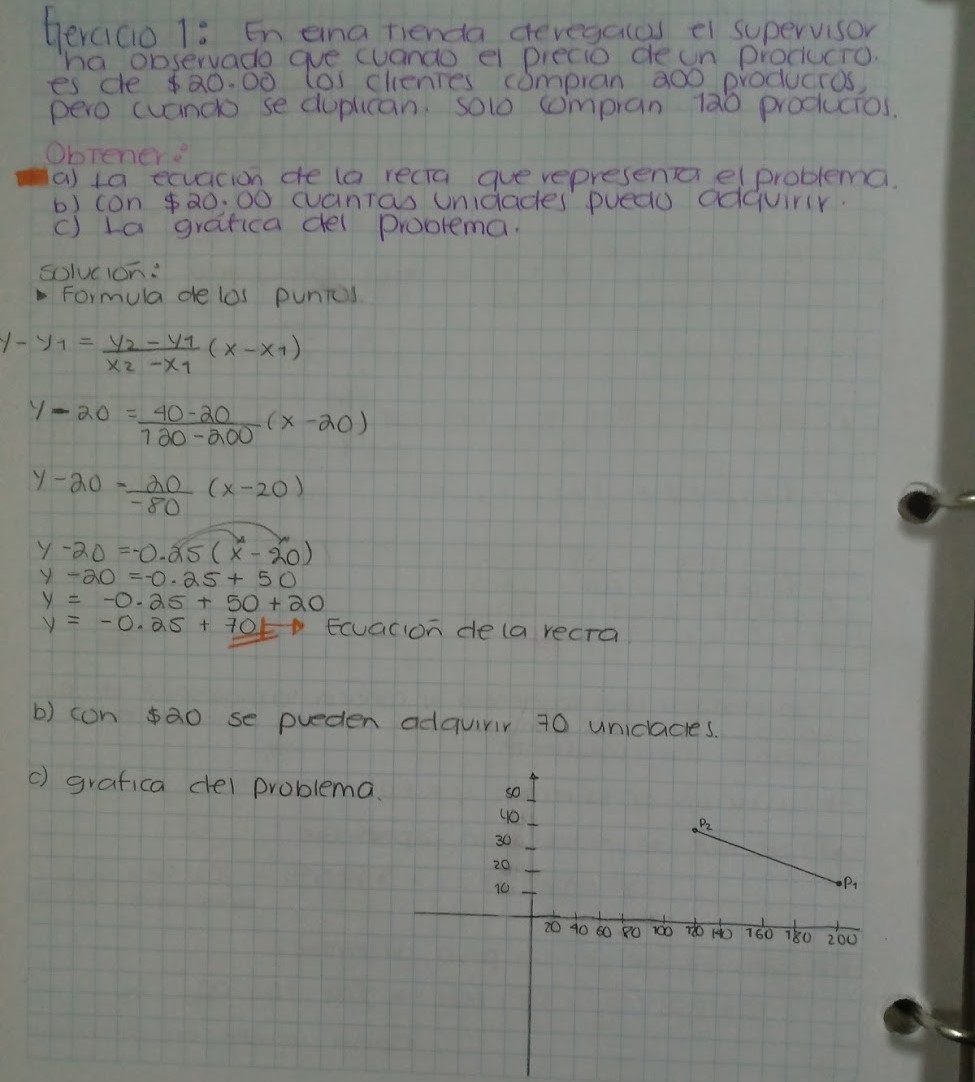 Ejercicio 1: En una tienda de regalos el supervisor
ha observado que cuando el precio de un producto.
es de $20.00 los clientes compran 200 productos,
pero cuando se duplican. solo compran 120 productos.
Obtener:
a) La ecuación de la recta que representa el problema.
b) con $20.00 cuantas unidades puedo adquirir.
c) La gráfica del problema.
Solución:
▸ Formula de los puntos.
y - y1 = y2 - y1 / x2 - x1 (x - x1)
y - 20 = 40 - 20 / 120 - 200 (x - 20)
y - 20 = 20 / -80 (x - 20)
y - 20 = -0.25 (x - 20)
y - 20 = -0.25 + 50
y = -0.25 + 50 + 20
y = -0.25 + 70 → Ecuación de la recta.
b) con $20 se pueden adquirir 70 unidades.
c) grafica del problema.
50
40
30
20
10
P2
P1
20 40 60 80 100 120 140 160 180 200